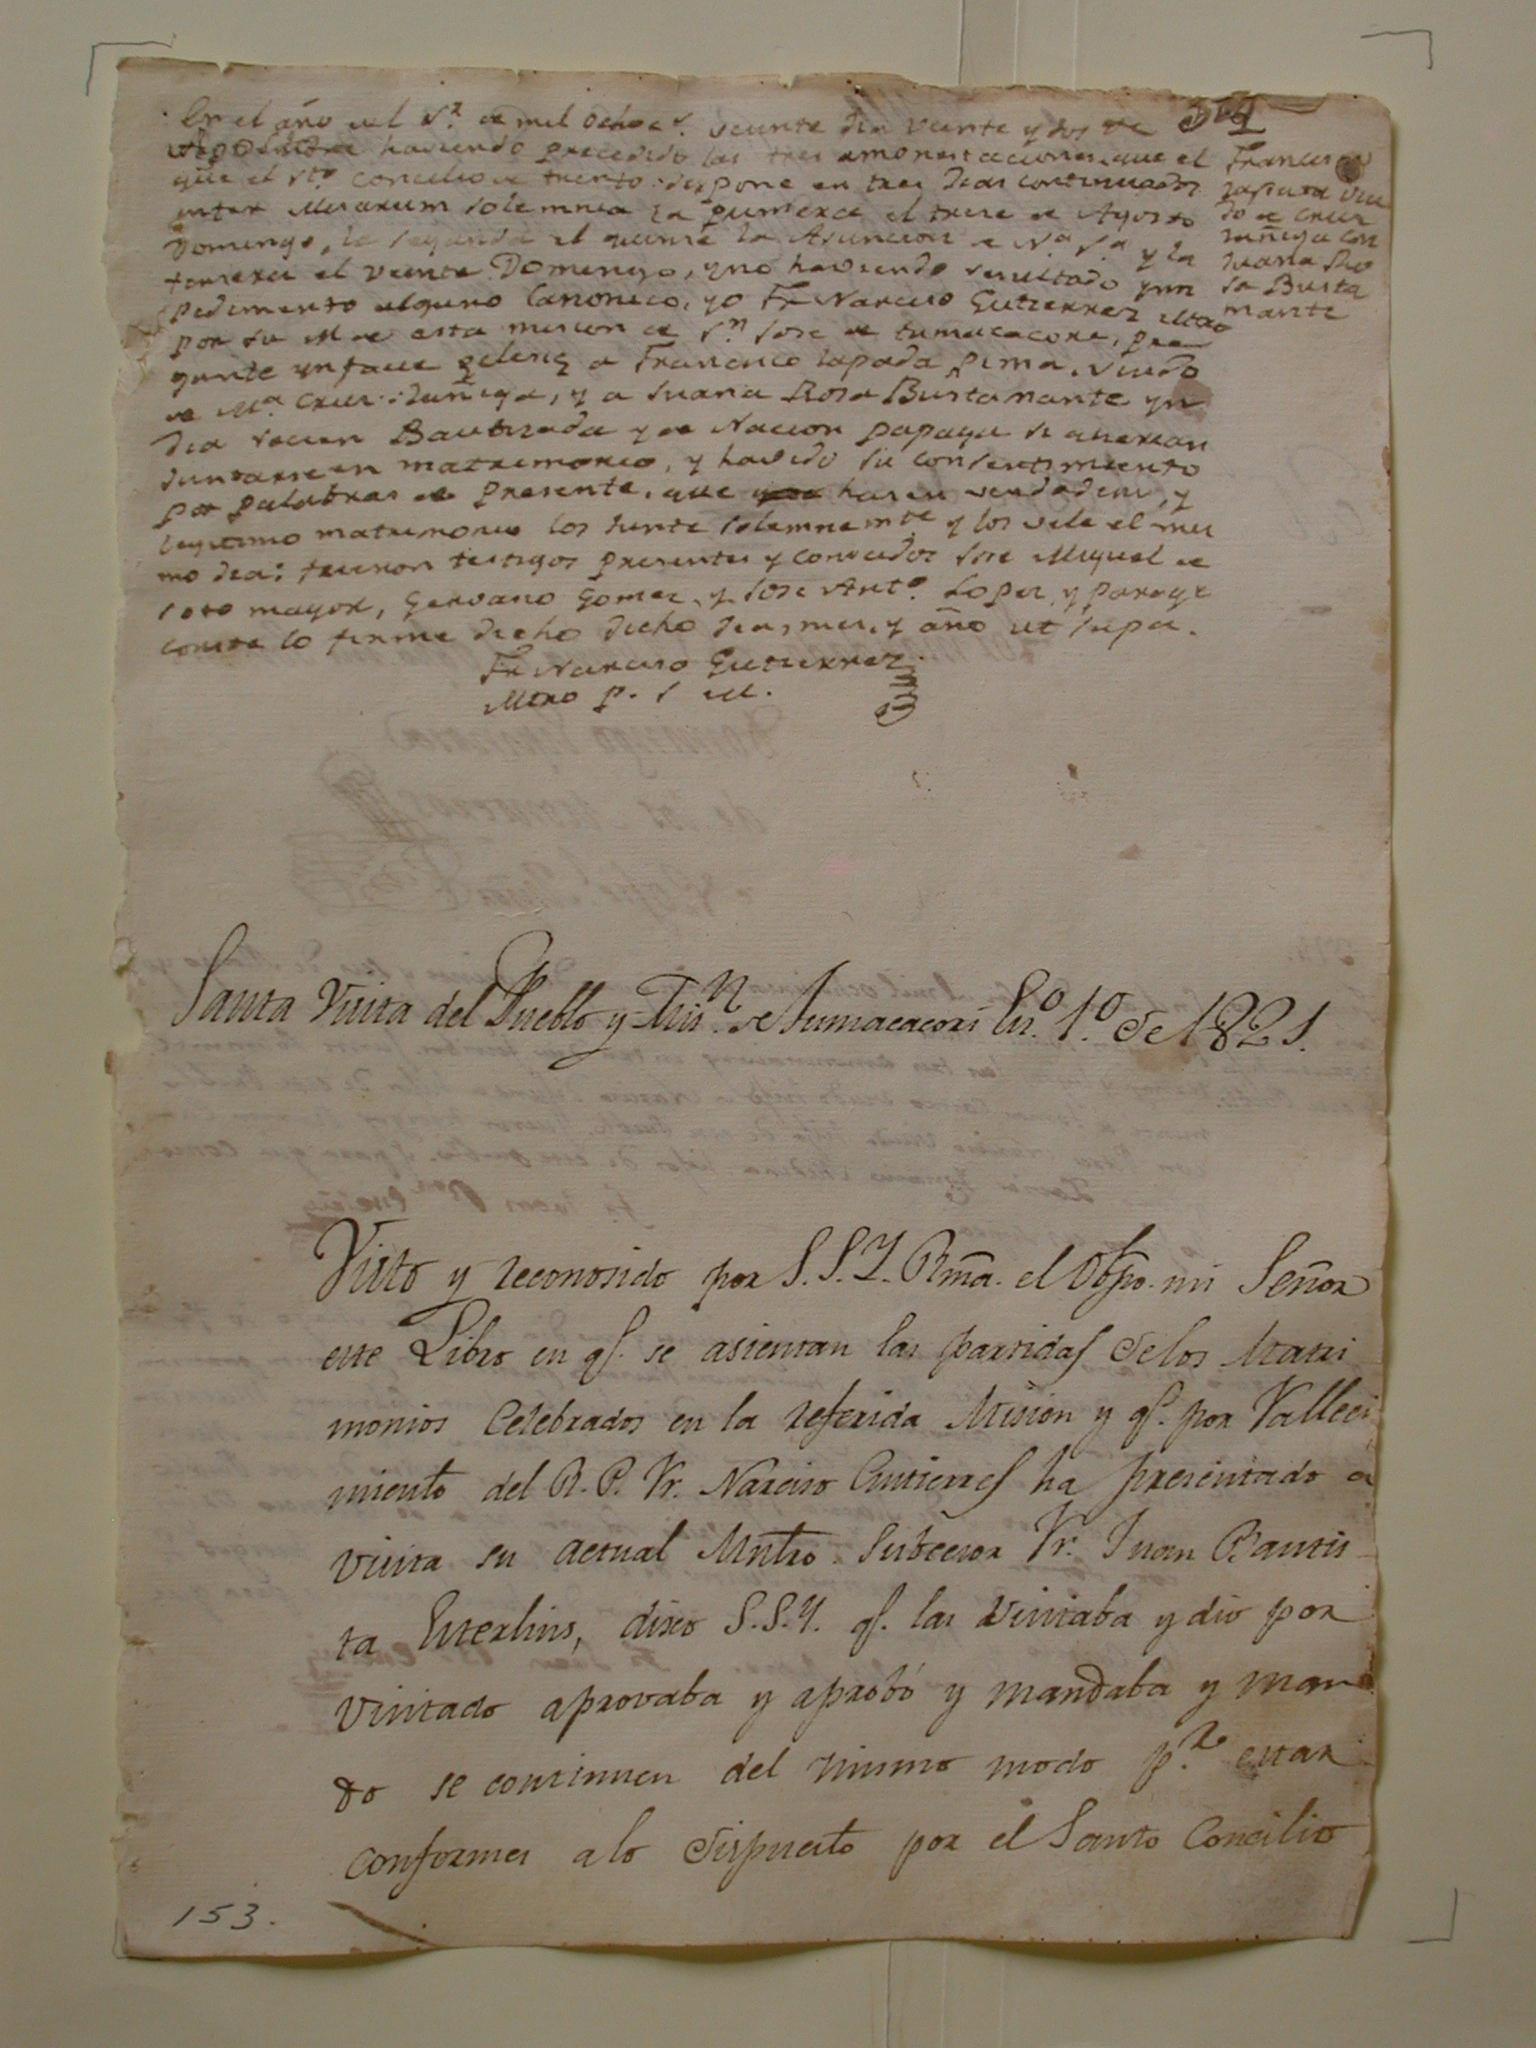 En el año del Sr. de mil ochocs. veinte dia veinte y dos de
haviendo precedido las tres amonestaciones que el
que el Sto. Concilio de trento dispone en tres dias continuados
inter Misarum solemnia la primera el trese de Agosto
Domingo, la segunda el quinse la Asuncion de Na. Sa. y la
tersera el veinte Domingo, y no haviendo resultado ym
pedimento alguno Canonico, yo Fr. Narciso Gutierrez Mtro
por su M. de esta mision de Sn. Jose de tumacacori, pre
gunte yn facie eclesie a Francisco Zapada pima, viudo
de Ma. Cruz Zuñiga, y a Juana Rosa Bustamante yn
dia recien Bautizada y de Nacion papaga si querian
Juntarse en matrimonio, y havido su consentimiento
por palabras de presente, que hasen verdadero, y
legitimo matrimonio los Junte solemnemte y los vele el mis
mo dia: fueron testigos presentes y conosidos Jose Miguel de
soto mayor, Gervasio Gomez, y Jose Anto. Lopez, y para qe
conste lo firme dicho dicho dia, mes, y año ut supra.
Fr. Narciso Gutierrez
Mtro p. S M.
Francisco
Zapada viu
do de Cruz
Zuñiga con
Juana Ro
sa Busta
mante
Santa Visita del Pueblo y Misn. de Tumacacori Eno. 1o. de 1821.
Visto y reconosido por S.S.Y. Rma. el Obpo. mi Señor
este Libro en q. se asientan las partidas de los Matri
monios Celebrados en la referida Mision y q. por Falleci
miento del R. P. Fr. Narciso Gutierres ha presentado a
visita su actual Mntro. Subcesor Fr. Juan Bautis
ta Esterlins, dixo S.S.Y. q. las Visitaba y dio por
Visitado aprovaba y aprobó y mandaba y man
do se continuen del mismo modo pr. estar
conformes a lo dispuesto por el Santo Concilio
153.